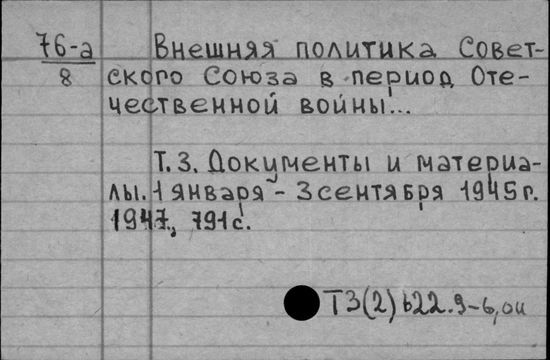 76-а
8
Внешняя политика Совет-
ского Союза в период Оте-
чественной войны...
Т.3. Документы и материа-
лы. 1 января - 3 сентября 1945 г.
1947, 791 с.
Т3(2)622.9-6,0и